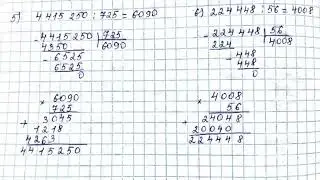 5) 4415250 : 725 = 6090
- 4415250 | 725
4350 | 6090
- 6525
6525
0
× 6090
725
+ 3045
1218
4263
4415250
6) 224448 : 56 = 4008
- 224448 | 56
224 | 4008
- 448
448
0
× 4008
56
+ 24048
20040
224448